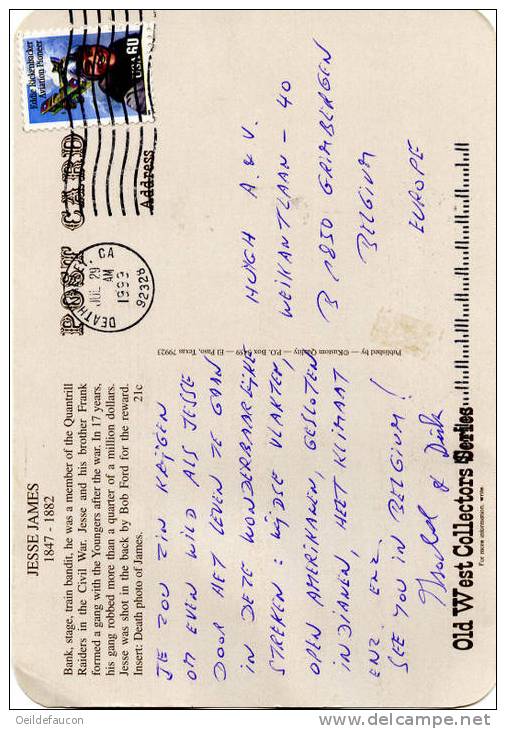 JESSE JAMES
1847 - 1882
Bank, stage, train bandit, he was a member of the Quantrill
Raiders in the Civil War. Jesse and his brother Frank
formed a gang with the Youngers after the war. In 17 years,
his gang robbed more than a quarter of a million dollars.
Jesse was shot in the back by Bob Ford for the reward.
Insert: Death photo of James. 21c
JE ZOU ZIN KRIJGEN
OM EVEN WILD ALS JESSE
DOOR HET LEVEN TE GAAN
IN DEZE WONDERBAARLIJKE
STREKEN: WIJDSE VLAKTEN,
OPEN AMERIKANEN, GESLOTEN
INDIANEN, HEET KLIMAAT
ENZ. ENZ.
SEE YOU IN BELGIUM!
& Dirk
POST CARD
Address
Eddie Rickenbacker
Aviation Pioneer
USA 60
DEATH
CA
JUL 29
AM
1999
92328
HUYGH A. & V.
WEIKANTLAAN - 40
B 1850 GRIMBERGEN
BELGIUM
EUROPE
Published by ©Kustom Quality — P.O. Box — El Paso, Texas 79923
Old West Collectors Series
For more information, write.
Oeildefaucon
http://www.delcampe.net